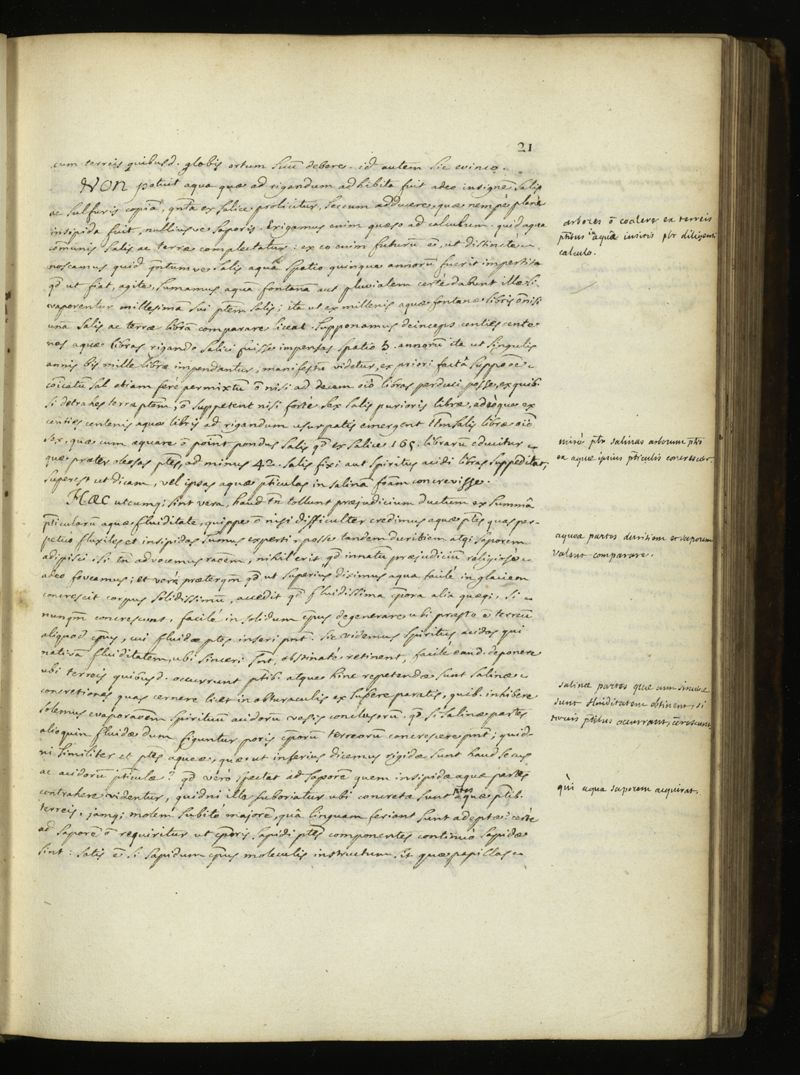 21
cum terreis quibusd. globis ortum suũ debere. id autem sic evinco.
NON potuit aqua quæ ad rigandum adhibita fuit adeo insignẽ salis
ac sulfuris copiã, qñta ex salice prolicitur, secum adducere, quæ nempe planè
insipida fuit, nulliusve saporis. Exigamus enim quæso ad calculum, quid aqua
cõmunis salis ac terræ complectatur. ex eo enim futurũ ẽ, ut distinctè
noscamus quid qñtumve salis aquæ spatio quinque annorũ fuerit impertita
qd ut fiat, agite, sumamus aquã fontanã aut pluvialem certè dabunt illæ si
evaporentur millesimã sui ptem salis; ita ut ex millenis aquæ fontanæ libris õ nisi
una salis ac terræ librã comparare liceat. Supponamus deinceps centies cente
nas aquæ libras rigando salici fuisse impensas spatio 5. annorũ ita ut singulis
annis bis mille libræ impendantur, manifestũ videtur, ex priori facta suppõõe
cõicatũ sal etiam ferè permixtũ õ nisi ad decem oĩõ libras perduci posse, ex quib.
si detrahas terræ ptem, õ suppetent nisi fortè sex salis purioris libræ, adeòque ex
centies centenis aquæ libris ad rigandum usurpatis emergent tñm salis libræ oĩõ
sex, quæ cum æquare õ poĩnt pondus salis qd ex salice 165. librarũ educitur
quæ præter oleosas ptes, ad minus 42. salis fixi aut spiritus acidi libras suppeditat,
superest ut dicam, vel ipsas aquæ pticulas in salinã formã concrevisse.
HÆC utcumq; sint vera, haud tñ tollunt præjudicium ductum ex summâ
pticularũ aquæ fluiditate, quippe õ nisi difficulter credimus aquæ ptes quas per-
petuò fluxiles et insipidas sumus experti posse tandem duritiem atq; saporem
adipisci. si tñ advocemus raõem, nihil erit qd innatũ præjudiciũ religiosè
adeo foveamus; et verò præterqm qd ut superius diximus aqua facilè in glaciem
concrescit corpus solidissimũ, accedit qd fluidissima cpora alia quæq;, si
nunqm concrescunt, facilè in solidum cpus degenerare, ubi præsto ẽ terreũ
aliquod cpus, cui fluidæ ptes inseri pnt. sic videmus spiritus acidos qui
nativã fluiditatem, ubi sinceri snt, obstinatè retinent, facilè eand. deponere
ubi terreis quibusd. occurrunt ptib. atque hinc repetendæ sunt salinæ
concretiones quas cernere licet in obturaculis ex subere paratis, quib. inhibere
solemus evaporaõem spirituũ acidorũ vasis conclusorũ. qd si salinæ partes
alioquin fluidæ dum figuntur poris cporũ terreorũ concrescere pnt; quid-
ni similiter et ptes aqueæ, quæ ut inferius dicemus rigidæ sunt haud secus
ac acidorũ pticulæ? qd verò spectat ad saporẽ quem insipidæ aquæ partes
contrahere videntur, quidni illo saboriatur ubi concretæ sunt aquæ ptes ptib.
terreis, jamq; molem subito majorẽ, quâ linguam feriant sunt adeptæ: certè
ad saporẽ õ requiritur ut cporis sapidi ptes componentes continuò sapidæ
sint: satis ẽ si sapidum cpus moleculis instructum, et quæ papillas
arbores õ coalere ex terreis
ptibus in aquâ insitis pbr diligenti
calculo.
mirè pbr salinas arborum ptes
ex aquæ ipsius pticulis concrescere.
aqueæ partes duritiem et saporem
valent comparare.
salinæ partes quæ cum sinceræ
sunt fluiditatem obtinent, si
terreis ptibus occurrant, cõcrescunt
quî aqua saporem acquirat.